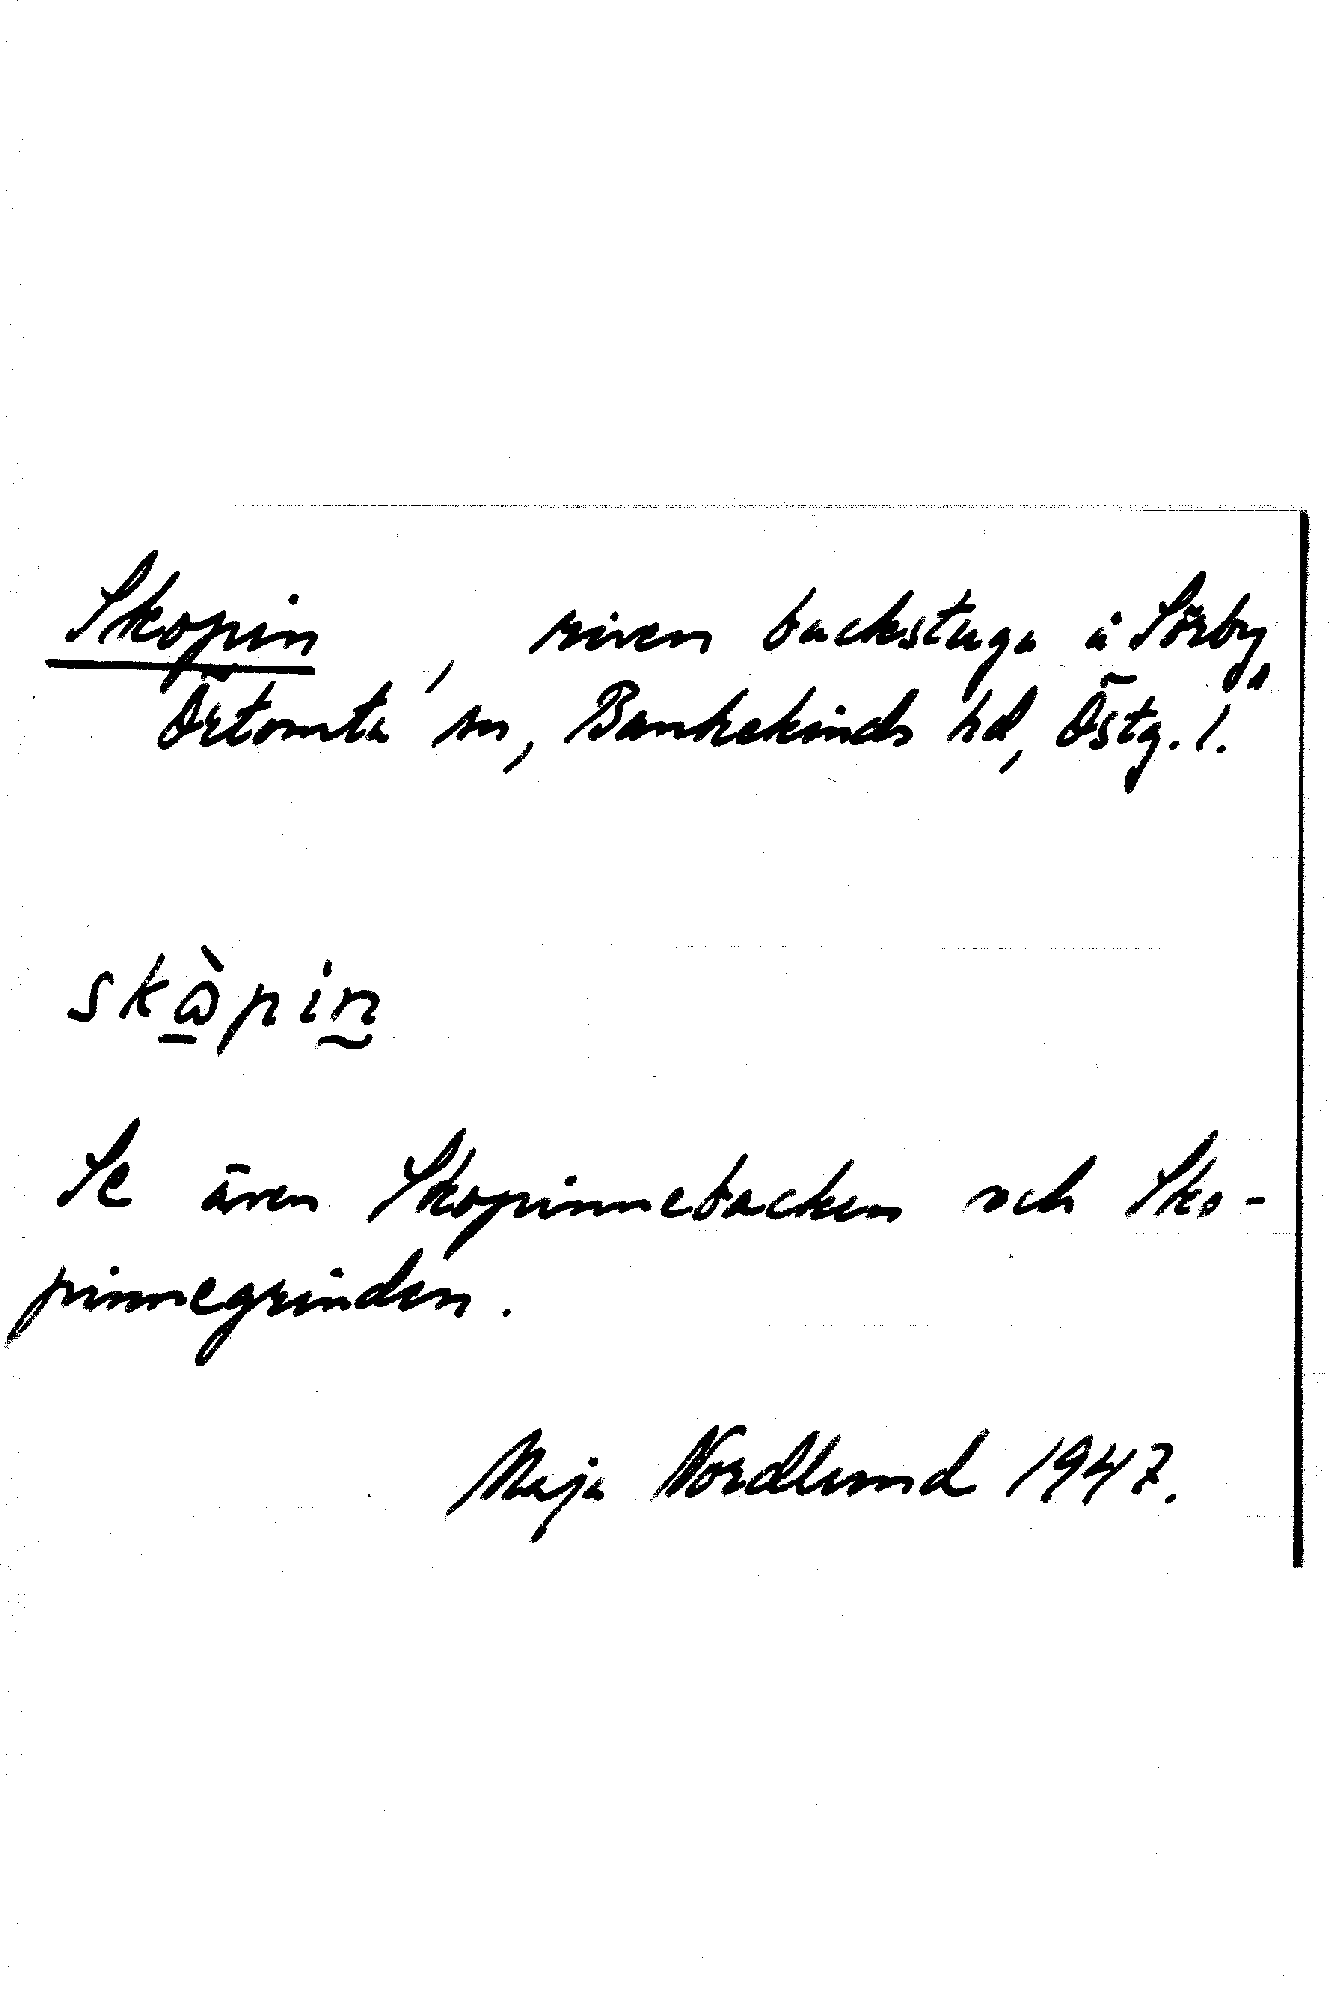 Skopin, riven backstuga å Sörby,
Örtomta sn, Bankekinds hd, Östg. l.
skὼ̱pin̰
Se även Skopinnebacken och Sko-
pinnegrinden.
Maja Nordlund 1947.